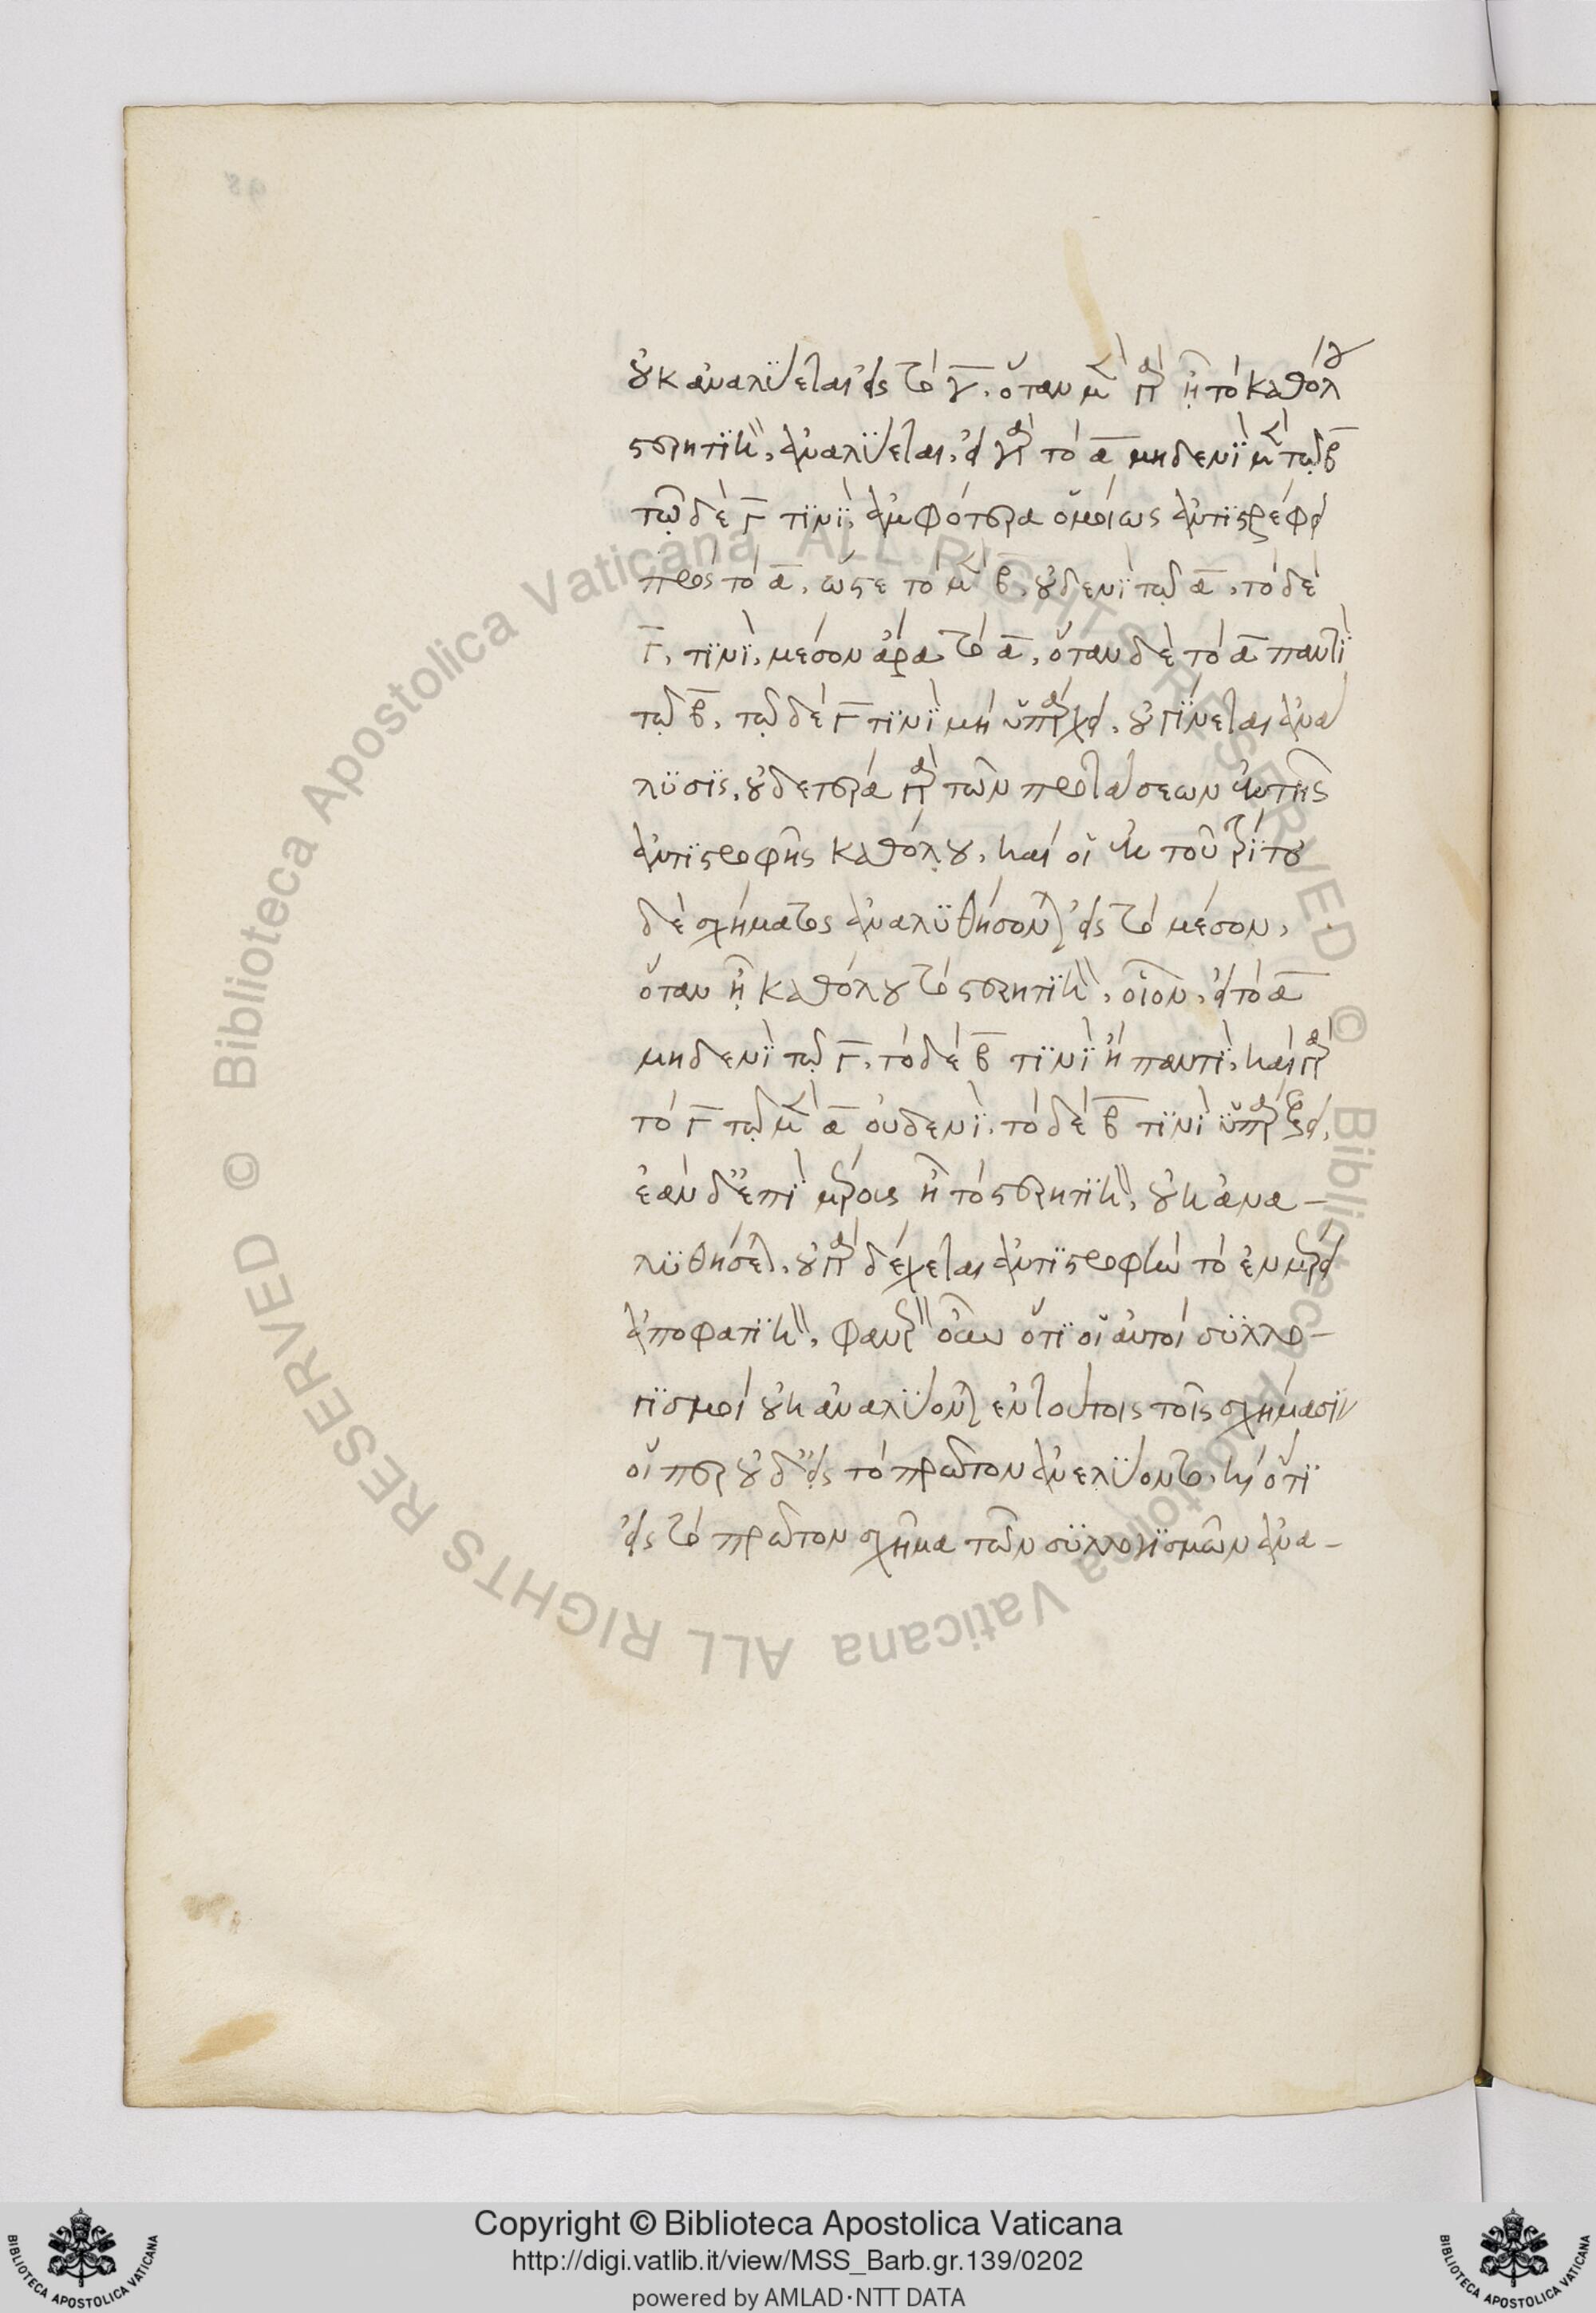 οὐκ ἀναλύεται εἰς τὸ γ, ὅταν μὲν γὰρ ᾖ τὸ καθόλου
στερητικὸν, ἀναλύεται, εἰ γὰρ τὸ α μηδενὶ μὲν τῷ β
τῷ δὲ Γ τινὶ, ἀμφότερα ὁμοίως ἀντιστρέφει
πρὸς τὸ α, ὥστε τὸ μὲν β, οὐδενὶ τῷ α, τὸ δὲ
Γ, τινὶ, μέσον ἄρα τὸ α, ὅταν δὲ τὸ α παντὶ
τῷ β, τῷ δὲ Γ τινὶ μὴ ὑπάρχει, οὐ γίνεται ἀνά
λυσις, οὐδετέρα γὰρ τῶν προτάσεων ἐκ τῆς
ἀντιστροφῆς καθόλου, καὶ οἱ ἐκ τοῦ τρίτου
δὲ σχήματος ἀναλυθήσονται εἰς τὸ μέσον,
ὅταν ᾖ καθόλου τὸ στερητικὸν, οἷον, εἰ τὸ α
μηδενὶ τῷ Γ, τὸ δὲ β τινὶ ἢ παντὶ, καὶ γὰρ
τὸ Γ τῷ μὲν α οὐδενὶ, τὸ δὲ β τινὶ ὑπάρξει,
ἐὰν δ' ἐπὶ μέρους ᾖ τὸ στερητικὸν, οὐκ ἀνα-
λυθήσεται, οὐ γὰρ δέχεται ἀντιστροφὴν τὸ ἐν μέρει
ἀποφατικὸν, φανερὸν οὖν ὅτι οἱ αὐτοὶ συλλο-
γισμοὶ οὐκ ἀναλύονται ἐν τούτοις τοῖς σχήμασιν
οἵπερ οὐδ' εἰς τὸ πρῶτον ἀνελύοντο, καὶ ὅτι
εἰς τὸ πρῶτον σχῆμα τῶν συλλογισμῶν ἀνα-
Copyright © Biblioteca Apostolica Vaticana
http://digi.vatlib.it/view/MSS_Barb.gr.139/0202
powered by AMLAD·NTT DATA